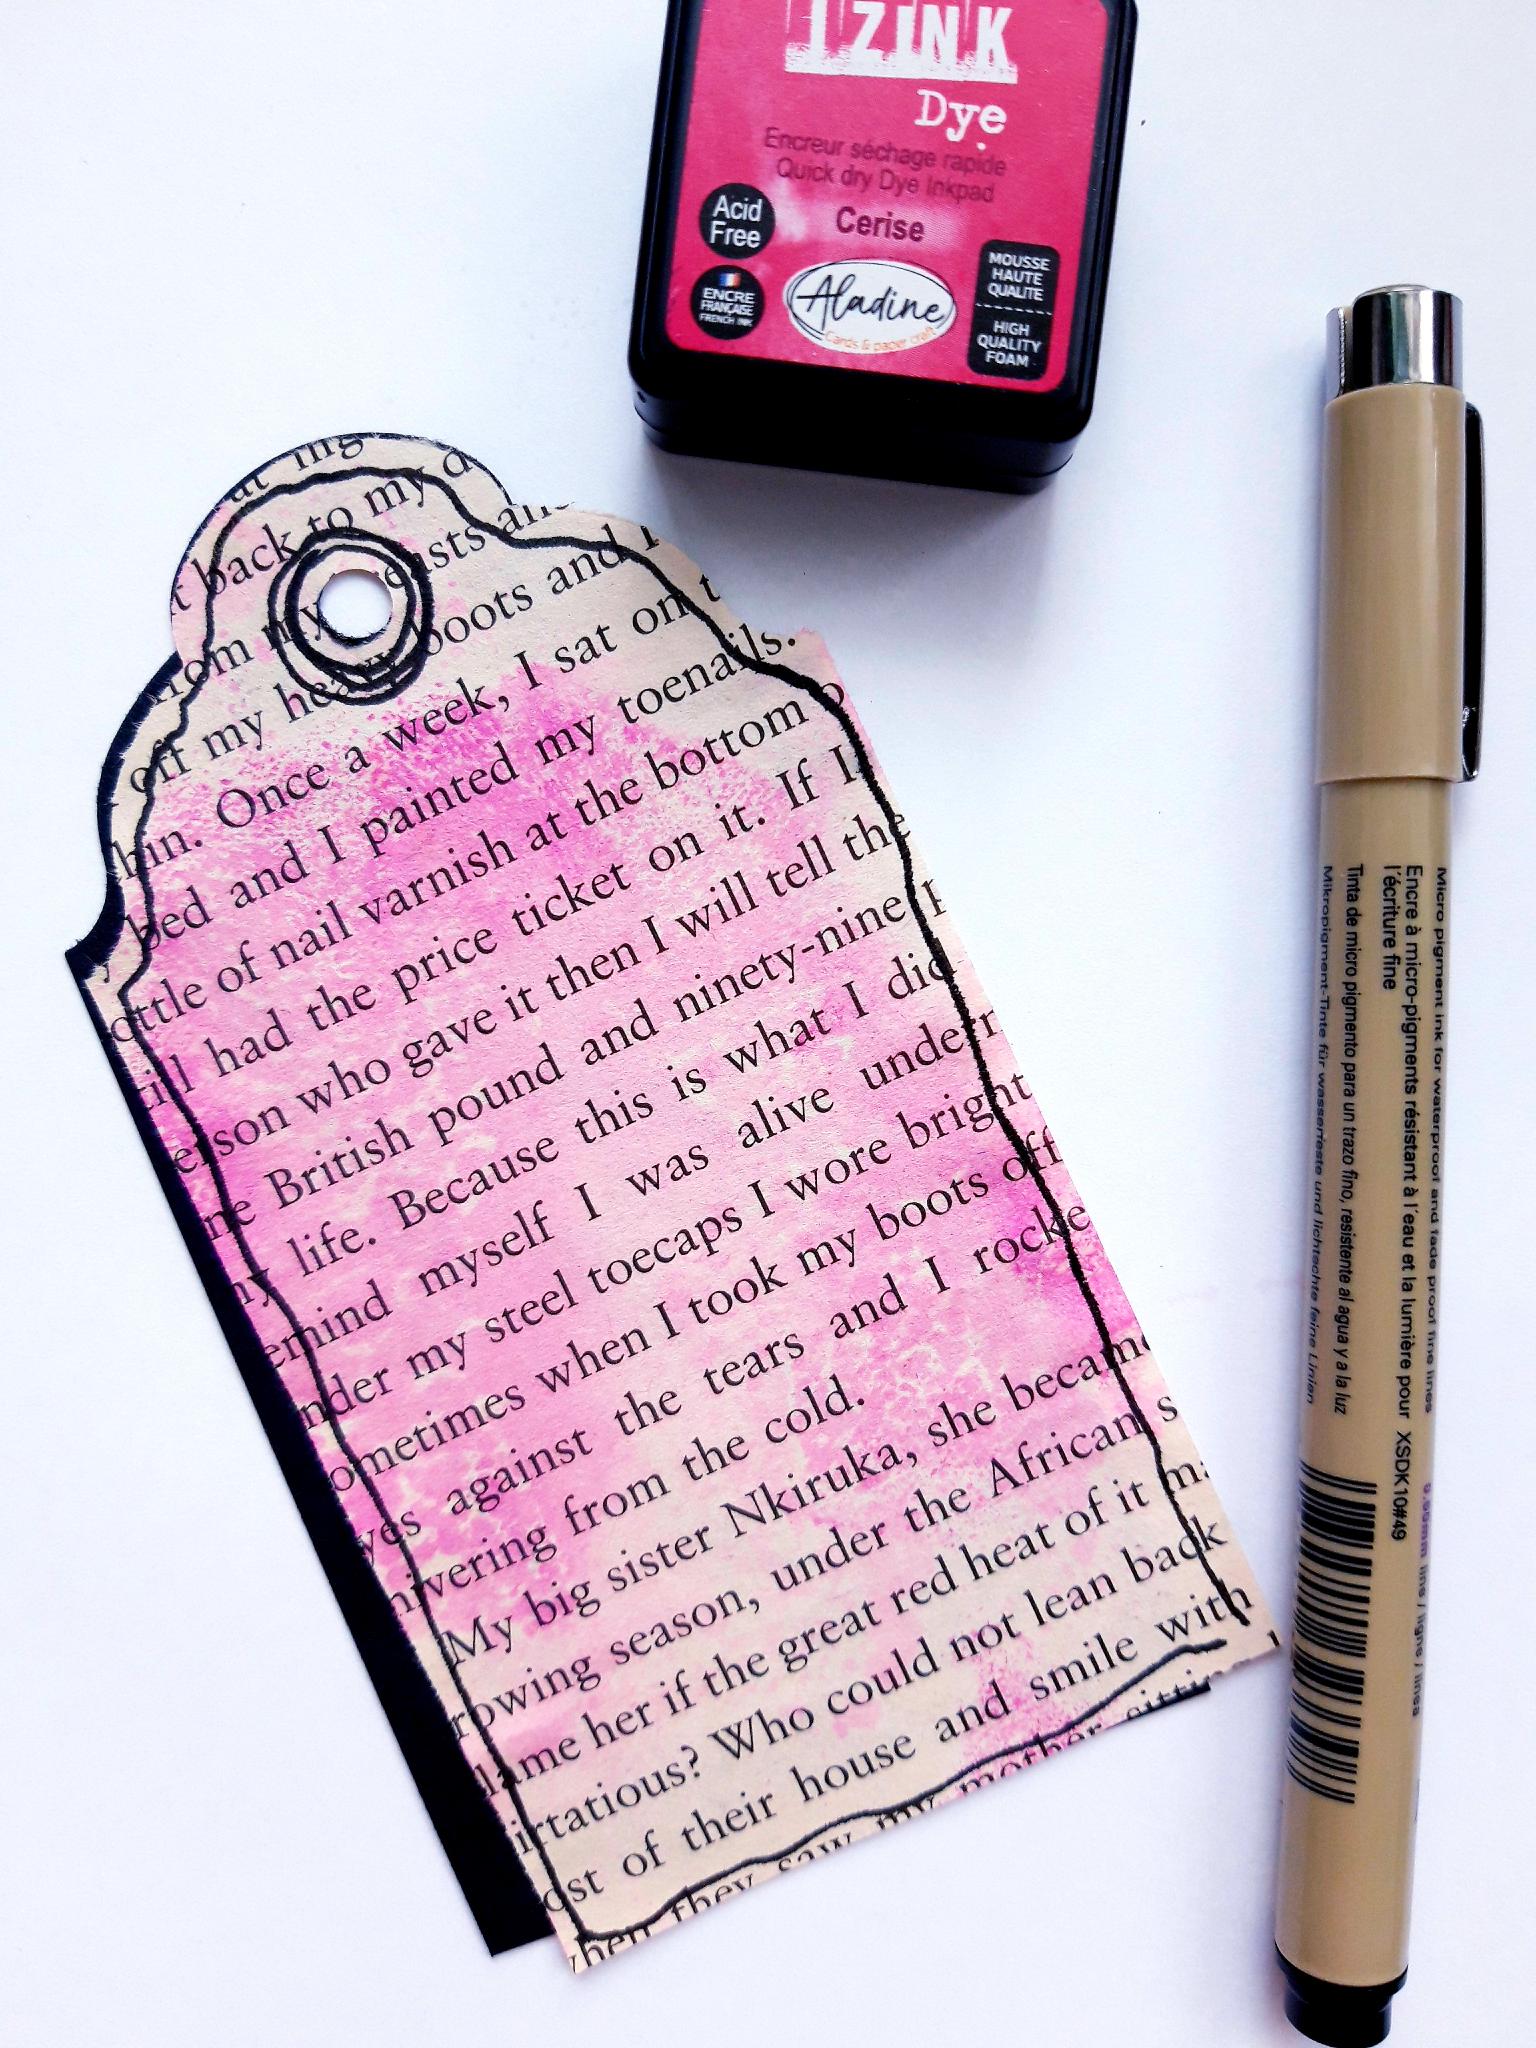 IZINK
Dye
Encreur séchage rapide
Quick dry Dye Inkpad
Cerise
Acid
Free
ENCRE
FRANÇAISE
FRENCH INK
Aladine
Cards & paper craft
MOUSSE
HAUTE
QUALITE
HIGH
QUALITY
FOAM
ing
back to my d
from my easts an
off my heavy boots and I
hin. Once a week, I sat on t
bed and I painted my toenails.
ottle of nail varnish at the bottom o
till had the price ticket on it. If I
erson who gave it then I will tell the
ne British pound and ninety-nine p
my life. Because this is what I did
emind myself I was alive undern
nder my steel toecaps I wore bright
ometimes when I took my boots off
yes against the tears and I rocke
hivering from the cold.
My big sister Nkiruka, she became
rowing season, under the African s
lame her if the great red heat of it ma
irtatious? Who could not lean back
ost of their house and smile with
when they saw my mother sittin
Micro pigment ink for waterproof and fade proof fine lines
Encre à micro-pigments résistant à l'eau et la lumière pour
l'écriture fine
XSDK10#49
Tinta de micro pigmento para un trazo fino, resistente al agua y a la luz
Mikropigment-Tinte für wasserfeste und lichtechte feine Linien
line / ligne / línea